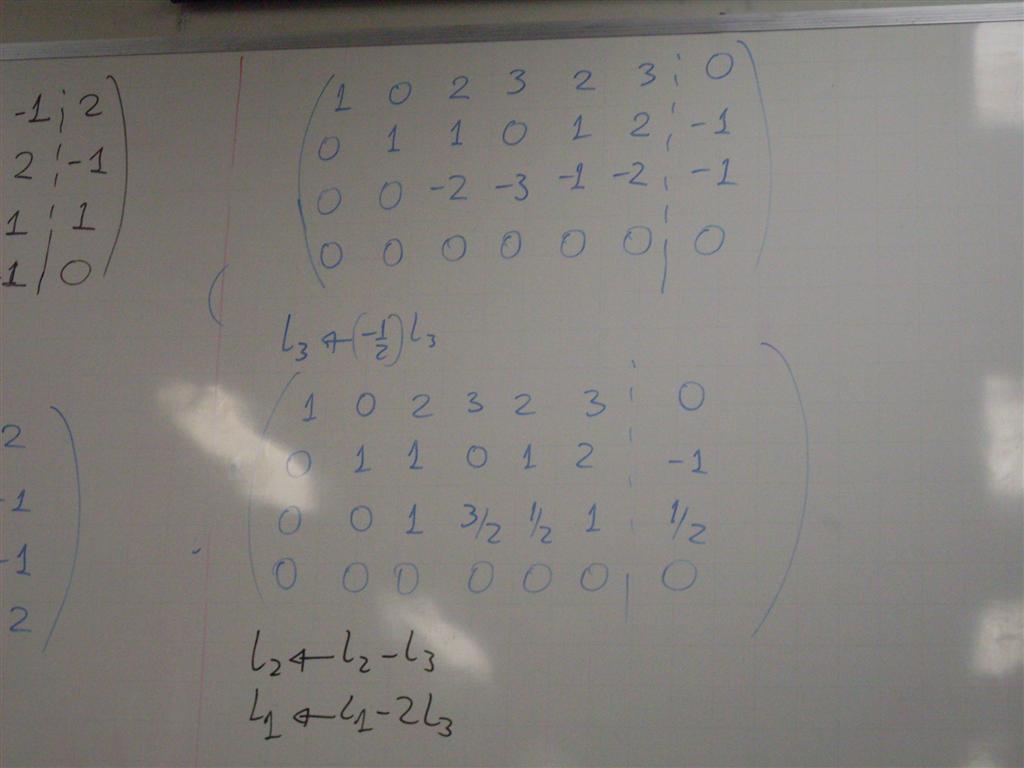 -1 ¦ 2
2 ¦ -1
1 ¦ 1
-1 | 0
2
-1
-1
2
1 0 2 3 2 3 ¦ 0
0 1 1 0 1 2 ¦ -1
0 0 -2 -3 -1 -2 ¦ -1
0 0 0 0 0 0 ¦ 0
l₃ ← (-1/2) l₃
1 0 2 3 2 3 ¦ 0
0 1 1 0 1 2 ¦ -1
0 0 1 3/2 1/2 1 ¦ 1/2
0 0 0 0 0 0 ¦ 0
l₂ ← l₂ - l₃
l₁ ← l₁ - 2l₃